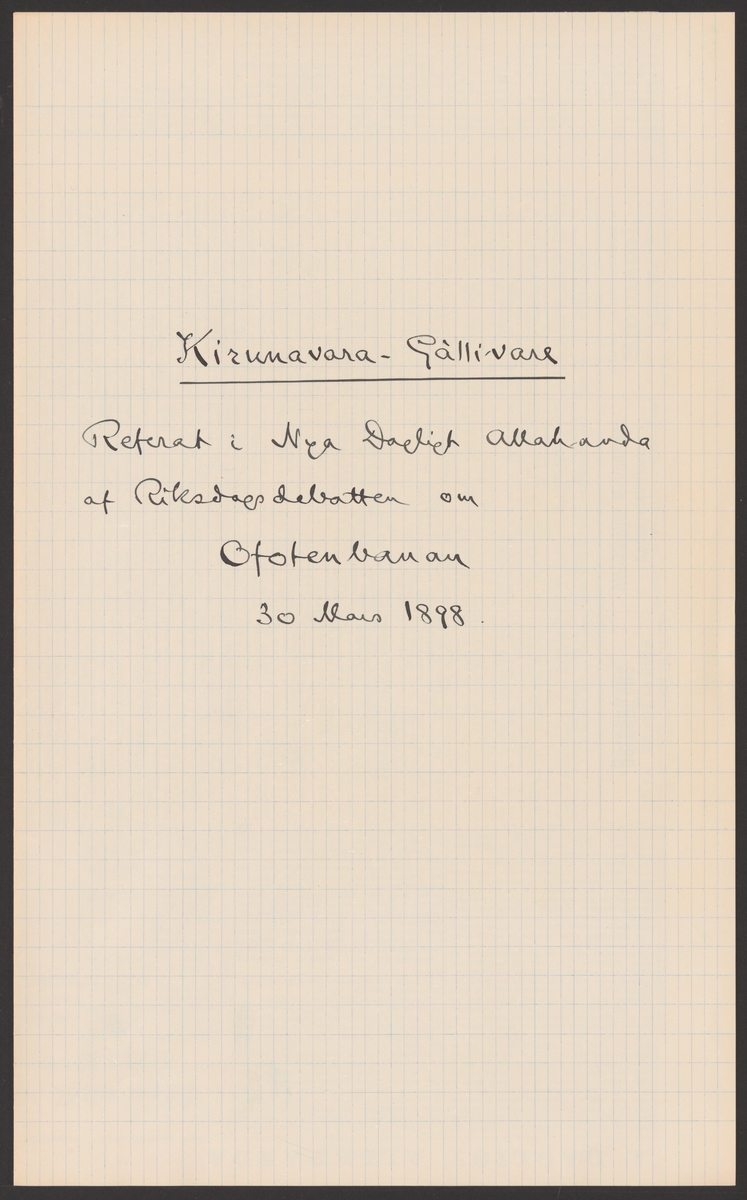 Kirunavara - Gällivare
Referat i Nya Dagligt Allahanda
af Riksdagsdebatten om
Ofotenbanan
30 Mars 1898.